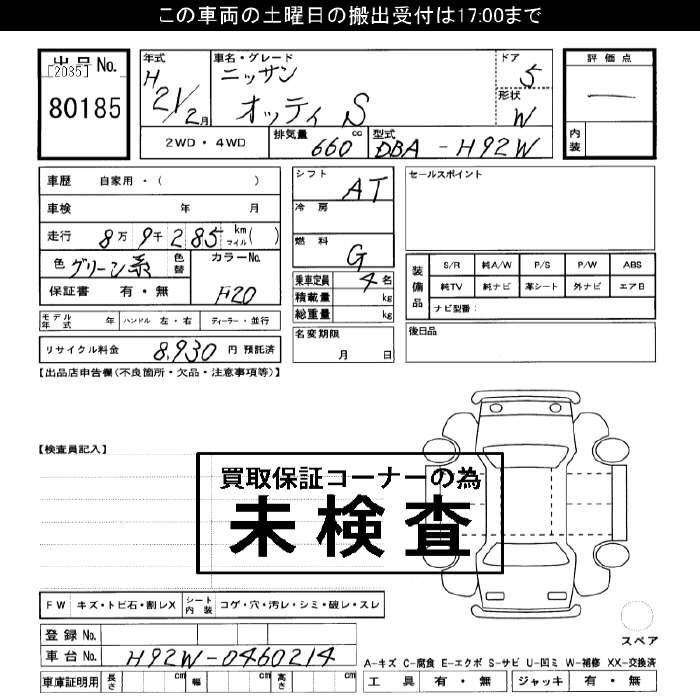 この車両の土曜日の搬出受付は17:00まで
出品No.
[2035]
80185
年式
H
21/2月
車名・グレード
ニッサン
オッティ S
ドア
5
形状
W
評価点
—
内装
2WD・4WD
排気量 660 cc
型式 DBA-H92W
車歴 自家用・( )
車検 年 月
走行 8万9千285 km マイル( )
色 グリーン系
色替
カラーNo.
F20
保証書 有・無
シフト
AT
冷房
燃料
G
乗車定員 4名
積載量 kg
総重量 kg
名変期限
月 日
セールスポイント
装備品
S/R 純A/W P/S P/W ABS
純TV 純ナビ 革シート 外ナビ エアB
ナビ型番:
後日品
モデル年式 年 ハンドル 左・右 ディーラー・並行
リサイクル料金 8,930 円 預託済
【出品店申告欄(不良箇所・欠品・注意事項等)】
【検査員記入】
買取保証コーナーの為
未検査
FW キズ・トビ石・割レX
シート内装 コゲ・穴・汚レ・シミ・破レ・スレ
登録No.
車台No. H92W-0460214
車庫証明用 長さ cm 幅 cm 高さ cm
スペア
A-キズ C-腐食 E-エクボ S-サビ U-凹ミ W-補修 XX-交換済
工具 有・無 ジャッキ 有・無